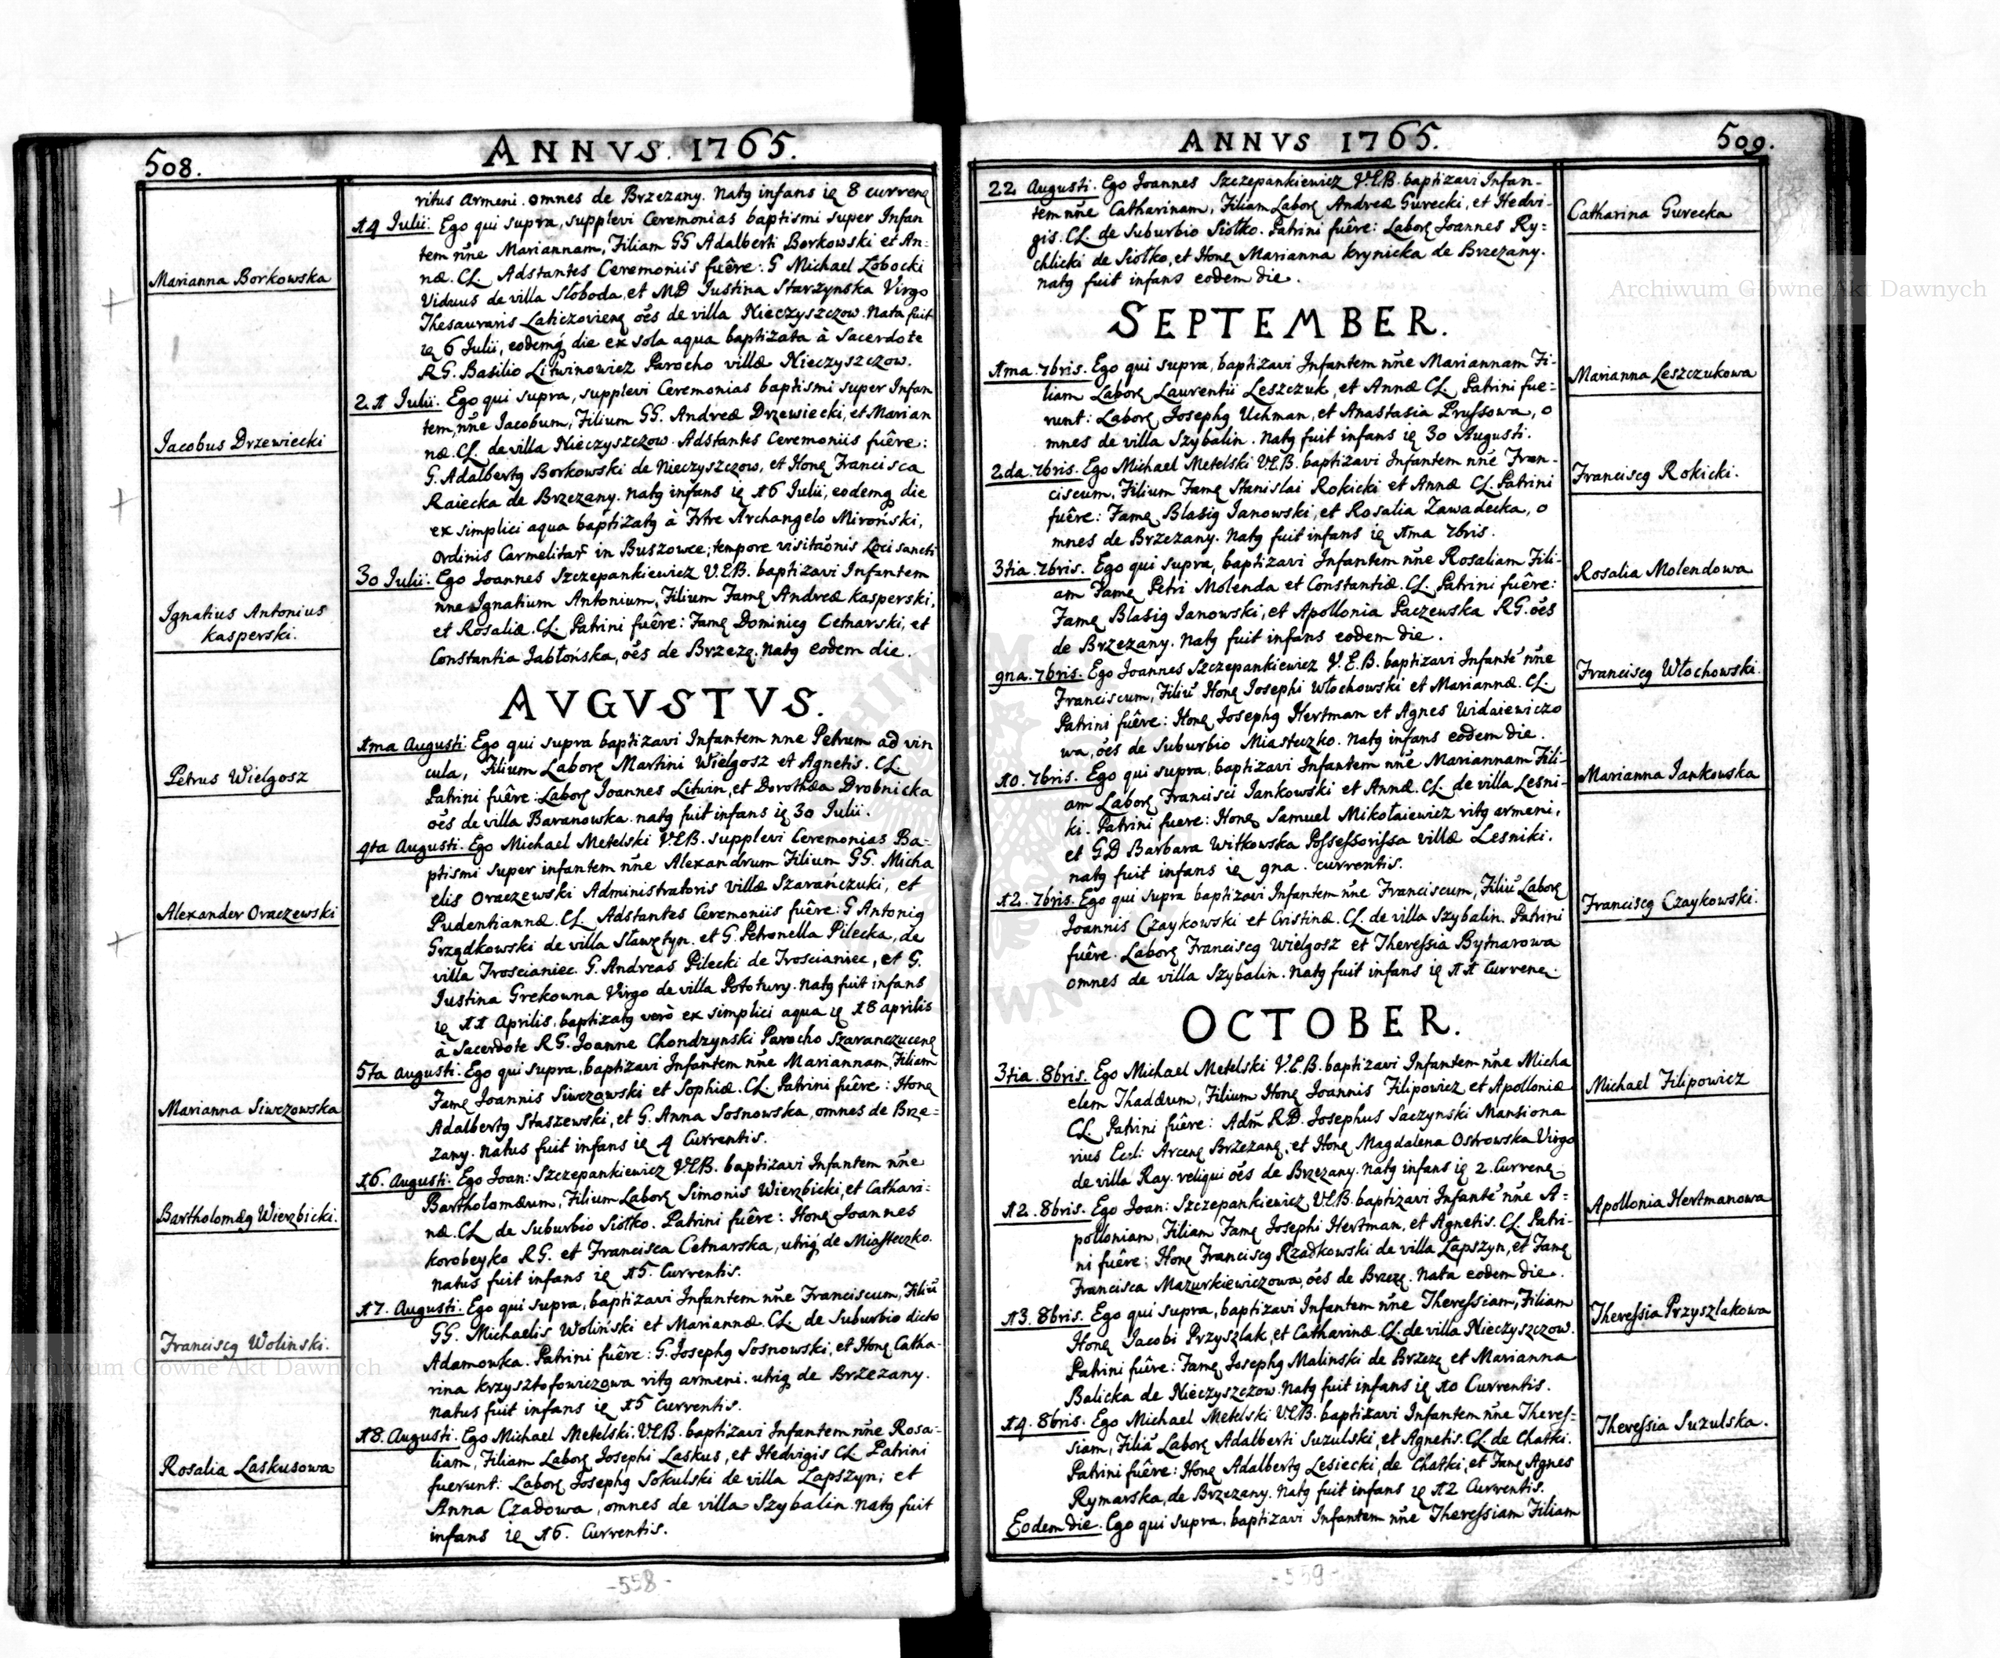 508.
ANNVS. 1765.
ritus Armeni. omnes de Brzezany. Natꝯ infans iꝫ 8 curreneꝫ
Marianna Borkowska
14 Iulii. Ego qui supra, supplevi Ceremonias baptismi super Infan
tem nñe Mariannam, Filiam GG Adalberti Borkowski et An:
næ. CL. Adstantes Ceremoniis fuêre: G Michael Łobocki
Viduus de villa Sloboda, et MD Iustina Starzynska Virgo
Thesauraris Laticzovienꝫ oẽs de villa Nieczyszczow. Nata fuit
iꝫ 6 Iulii, eodemq́ die ex sola aqua baptizata à Sacerdote
RG. Basilio Litwinowicz Parocho villæ Nieczyszczow.
Iacobus Drzewiecki
21 Iulii. Ego qui supra, supplevi Ceremonias baptismi super Infan
tem, nñe Iacobum, Filium GG. Andreæ Drzewiecki, et Marian
næ. CL. de villa Nieczyszczow. Adstantes Ceremoniis fuêre:
G. Adalbertꝯ Borkowski de Nieczyszczow, et Honꝫ Francisca
Raiecka de Brzezany. Natꝯ infans iꝫ 16 Iulii, eodemꝫ die
ex simplici aqua baptizatꝯ à Frtre Archangelo Miroński,
Ordinis Carmelitar̃ in Buszowce; tempore visitaõnis Loci sancti
Ignatius Antonius
kasperski.
30 Iulii. Ego Ioannes Szczepankiewicz V.E.B. baptizavi Infantem
nne Ignatium Antonium, Filium Famꝫ Andreæ kasperski,
et Rosaliæ. CL. Patrini fuêre: Famꝫ Dominicꝯ Cetnarski, et
Constantia Jabłońska, oẽs de Brzezꝫ. Natꝯ eodem die.
AVGVSTVS.
Petrus Wielgosz
1ma Augusti. Ego qui supra baptizavi Infantem nne Petrum ad vin
cula, Filium Laborꝫ Martini Wielgosz et Agnetis. CL
Patrini fuêre: Laborꝫ Ioannes Litwin, et Dorothæa Drobnicka
oẽs de villa Baranowka. natꝯ fuit infans iꝫ 30 Iulii.
Alexander Oraczewski
4ta Augusti. Ego Michael Metelski V.E.B. supplevi Ceremonias Ba-
ptismi super infantem nñe Alexandrum Filium GG. Micha
elis Oraczewski Administratoris villæ Szarańczuki, et
Pudentiannæ. CL. Adstantes Ceremoniis fuêre: G Antoniꝯ
Grządkowski de villa Sławętyn. et G. Petronella Pilecka, de
villa Troscianiec. G. Andreas Pilecki de Troscianiec, et G.
Iustina Grekowna Virgo de villa Pototury. Natꝯ fuit infans
iꝫ 11 Aprilis, baptizatꝯ verò ex simplici aqua iꝫ 18 aprilis
à Sacerdote RG. Ioanne Chondzynski Parocho Szaranczucenꝫ
Marianna Siwczowska
5ta Augusti. Ego qui supra, baptizavi Infantem nñe Mariannam, Filiam
Famꝫ Ioannis Siwczowski et Sophiæ. CL. Patrini fuêre: Honꝫ
Adalbertꝯ Staszewski, et G. Anna Sosnowska, omnes de Brze:
zany. Natus fuit infans iꝫ 4 Currentis.
Bartholomæꝯ Wierzbicki.
16. Augusti. Ego Ioan: Szczepankiewicz V.E.B. baptizavi Infantem nñe
Bartholomæum, Filium Laborꝫ Simonis Wierzbicki, et Cathari:
næ. CL de Suburbio Siołko. Patrini fuêre: Honꝫ Ioannes
korobeyko RG. et Francisca Cetnarska, utriq́ de Miasteczko.
natus fuit infans iꝫ 15. Currentis.
Franciscꝯ Wolinski.
17. Augusti. Ego qui supra, baptizavi Infantem nñe Franciscum, Filiũ
GG. Michaelis Woliński et Mariannæ. CL. de Suburbio dicto
Adamowka. Patrini fuêre: G. Iosephꝯ Sosnowski, et Honꝫ Catha-
rina krzysztofowiczowa ritꝯ armeni. utriꝫ de Brzezany.
natus fuit infans iꝫ 15 Currentis.
Rosalia Laskusowa
18. Augusti. Ego Michael Metelski. V.E.B. baptizavi Infantem nñe Rosa:
liam, Filiam Laborꝫ Iosephi Laskus, et Hedvigis CL Patrini
fuerunt: Laborꝫ Iosephꝯ Sokulski de villa Lapszyn; et
Anna Czadowa, omnes de villa Szybalin. Natꝯ fuit
infans iꝫ 16. Currentis.
-558-
ANNVS 1765.
509.
22 Augusti. Ego Ioannes Szczepankiewicz V.E.B. baptizavi Infan-
tem nñe Catharinam, Filiam Laborꝫ Andreæ Gurecki, et Hedvi-
gis. CL. de Suburbio Siołko. Patrini fuêre: Laborꝫ Ioannes Ry:
chlicki de Siołko, et Honꝫ Marianna krynicka de Brzezany.
natꝯ fuit infans eodem die.
Catharina Gurecka
SEPTEMBER.
1ma. 7bris. Ego qui supra, baptizavi Infantem nñe Mariannam Fi-
liam Laborꝫ Laurentii Leszczuk, et Annæ CL. Patrini fue:
runt: Laborꝫ Iosephꝯ Uchman, et Anastasia Prussowa, o
mnes de villa Szybalin. Natꝯ fuit infans iꝫ 30 Augusti.
Marianna Leszczukowa
2da. 7bris. Ego Michael Metelski V.E.B. baptizavi Infantem nñe Fran-
ciscum, Filium Famꝫ Stanislai Rokicki et Annæ CL. Patrini
fuêre: Famꝫ Blasiꝯ Ianowski, et Rosalia Zawadecka, o
mnes de Brzezany. Natꝯ fuit infans iꝫ 1ma 7bris.
Franciscꝯ Rokicki.
3tia. 7bris. Ego qui supra, baptizavi Infantem nñe Rosaliam Fili-
am Famꝫ Petri Molenda et Constantiæ. CL. Patrini fuêre:
Famꝫ Blasiꝯ Ianowski, et Apollonia Paczewska RG. oẽs
de Brzezany. Natꝯ fuit infans eodem die.
Rosalia Molendowa
9na. 7bris. Ego Ioannes Szczepankiewicz V.E.B. baptizavi Infantẽ nñe
Franciscum, Filiũ Honꝫ Iosephi Włochowski et Mariannæ. CL.
Patrini fuêre: Honꝫ Iosephꝯ Hertman et Agnes Widaiewiczo
wa, oẽs de Suburbio Miasteczko. Natꝯ infans eodem die.
Franciscꝯ Włochowski.
10. 7bris. Ego qui supra, baptizavi Infantem nñe Mariannam Fili-
am Laborꝫ Francisci Iankowski et Annæ. CL. de villa Lesni-
ki. Patrini fuere: Honꝫ Samuel Mikołaiewicz ritꝯ armeni,
et GD Barbara Witkowska Possessorissa villæ Lesniki.
natꝯ fuit infans iꝫ 9na. currentis.
Marianna Iankowska
12. 7bris. Ego qui supra baptizavi Infantem nñe Franciscum, Filiũ Laborꝫ
Ioannis Czaykowski et Cristinæ. CL. de villa Szybalin. Patrini
fuêre. Laborꝫ Franciscꝯ Wielgosz et Theressia Bytnarowa
omnes de villa Szybalin. Natꝯ fuit infans iꝫ 11 Currenꝫ.
Franciscꝯ Czaykowski.
OCTOBER.
3tia. 8bris. Ego Michael Metelski V.E.B. baptizavi Infantem nñe Micha
elem Thaddæum, Filium Honꝫ Ioannis Filipowicz et Apolloniæ
CL. Patrini fuêre: Adm̃ R.D. Iosephus Saczynski Mansiona
rius Eccl: Arcenꝫ Brzezanꝫ, et Honꝫ Magdalena Ostrowska Virgo
de villa Ray. reliqui oẽs de Brzezany. Natꝯ infans iꝫ 2. Currenꝫ.
Michael Filipowicz
12. 8bris. Ego Ioan: Szczepankiewicz V.E.B. baptizavi Infantẽ nñe A-
polloniam, Filiam Famꝫ Iosephi Hertman, et Agnetis. CL. Patri-
ni fuêre: Honꝫ Franciscꝯ Rzadkowski de villa Łapszyn, et Famꝫ
Francisca Mazurkiewiczowa, oẽs de Brzezꝫ. Nata eodem die.
Apollonia Hertmanowa
13. 8bris. Ego qui supra, baptizavi Infantem nñe Theressiam, Filiam
Honꝫ Iacobi Przyszlak, et Catharinæ CL. de villa Nieczyszczow.
Patrini fuêre: Famꝫ Iosephꝯ Malinski de Brzezꝫ et Marianna
Balicka de Nieczyszczow. Natꝯ fuit infans iꝫ 10 Currentis.
Theressia Przyszlakowa
14. 8bris. Ego Michael Metelski V.E.B. baptizavi Infantem nñe Theres-
siam, Filiã Laborꝫ Adalberti Suzulski, et Agnetis. CL de Chatki.
Patrini fuêre: Honꝫ Adalbertꝯ Lesiecki, de Chatki, et Famꝫ Agnes
Rymarska, de Brzezany. Natꝯ fuit infans iꝫ 12 Currentis.
Theressia Suzulska.
Eodem die. Ego qui supra. baptizavi Infantem nñe Theressiam Filiam
-559-
Archiwum Główne Akt Dawnych
Archiwum Główne Akt Dawnych